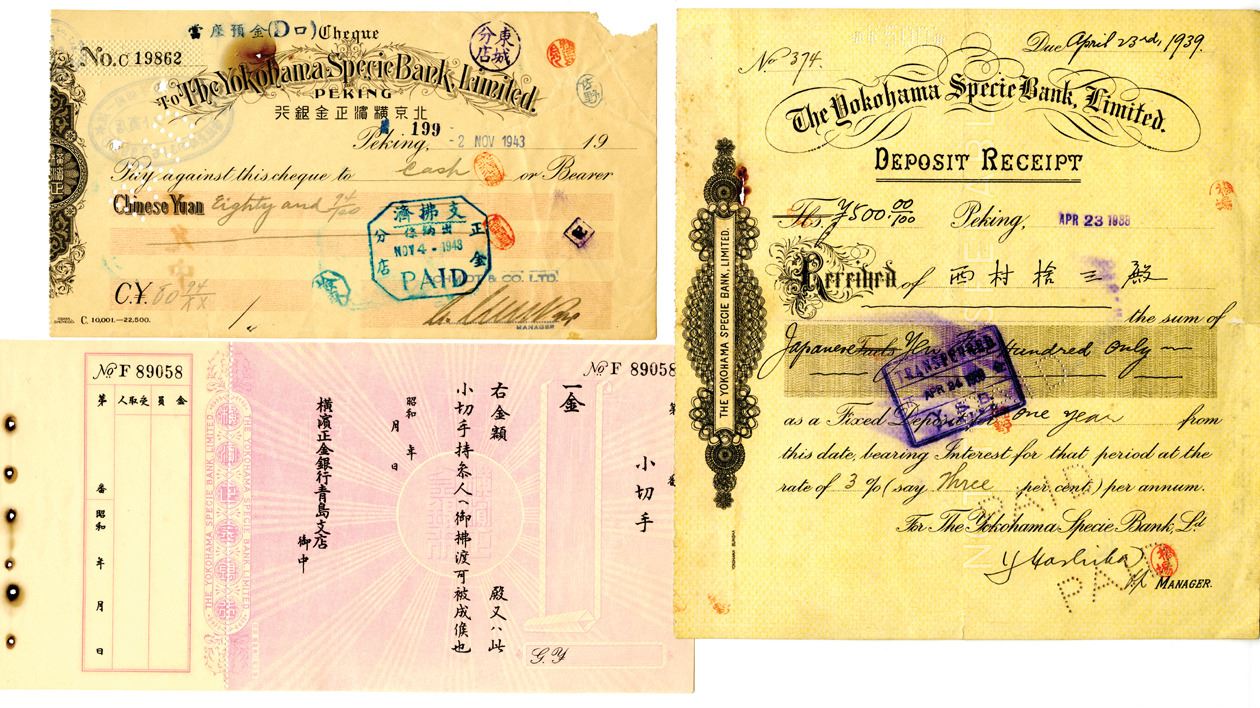 當座預金(D口)Cheque
No. C 19862
東城分店
To The Yokohama Specie Bank, Limited.
PEKING
行銀金正濱橫京北
199
Peking, -2 NOV 1943 19
Pay against this cheque to cash or Bearer
Chinese Yuan Eighty and 94/00
支拂濟
出納係
正金
分店
NOV 4 - 1943
PAID
& CO. LTD.
C.¥. 80 94/XX
MANAGER
C. 10,001.—22,500.
No. 374.
Due April 23rd, 1939.
The Yokohama Specie Bank, Limited.
DEPOSIT RECEIPT
Tls. ¥500.00/100 Peking, APR 23 1938
Received of 西村捨三殿
the sum of
Japanese Hundred Only —
TRANSFERRED
APR 24 1939
Y. S. B.
as a Fixed Deposit one year from
this date, bearing Interest for that period at the
rate of 3 % (say Three per cent) per annum.
For The Yokohama Specie Bank, Ld
MANAGER.
PAID
THE YOKOHAMA SPECIE BANK, LIMITED.
No F 89058
第
人取受員金
番
昭和
年
月
日
THE YOKOHAMA SPECIE BANK LIMITED
No F 89058
第
小切手
一金
右金額 殿又ハ此
小切手持叅人ヘ御拂渡可被成候也
昭和 年
月 日
橫濱正金銀行青島支店
御中
G. Y